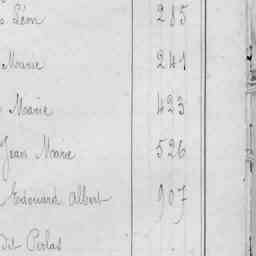 Léon 285
Marie 241
Marie 423
Jean Marie 526
Edouard Albert 907
dit